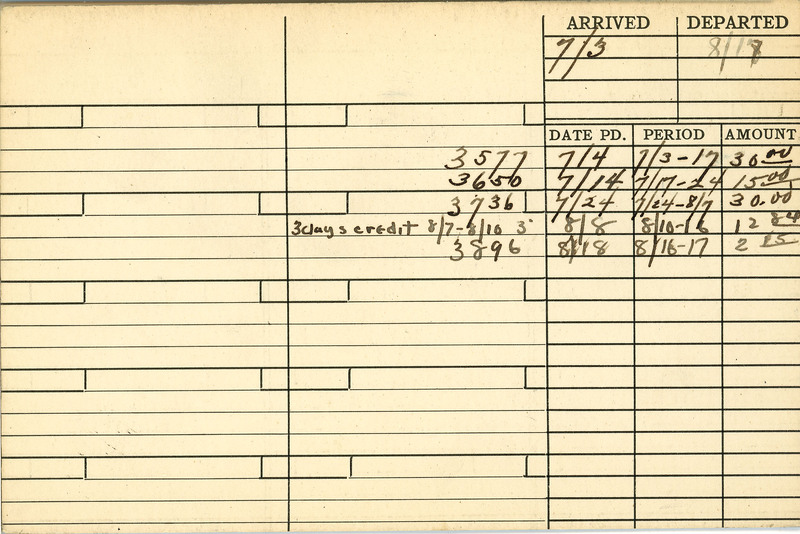 ARRIVED DEPARTED
7/3 8/17
DATE PD. PERIOD AMOUNT
3577 7/4 7/3-17 30.00
3650 7/14 7/17-24 15.00
3736 7/24 7/24-8/7 30.00
3days credit 8/7-8/10 8/8 8/10-16 12 84
3896 8/18 8/16-17 2 15